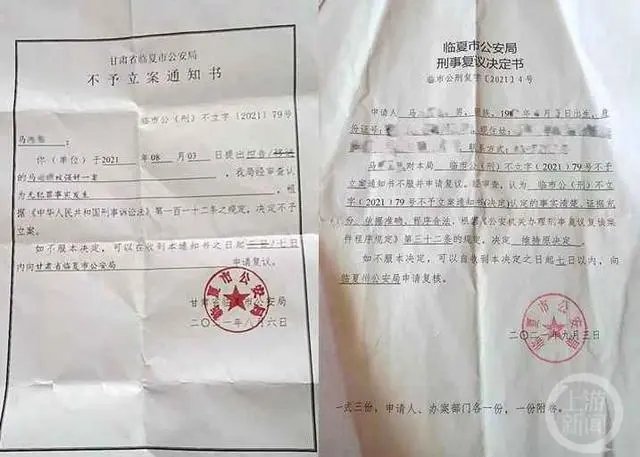 甘肃省临夏市公安局
不予立案通知书
临市公（刑）不立字〔2021〕79号
你（单位）于2021年08月03日提出控告
我局经审查认
为无犯罪事实发生，根
据《中华人民共和国刑事诉讼法》第一百一十二条之规定，决定不予
立案。
如不服本决定，可以在收到本通知书之日起七日
内向甘肃省临夏市公安局申请复议。
甘肃省临夏市公安局
二〇二一年八月六日
临夏市公安局
刑事复议决定书
临市公刑复字〔2021〕4号
申请人 马 男，日出生，身
份证号：现住址：
联系方式：
马 对本局 临市公（刑）不立字〔2021〕79号不予
立案通知书不服并申请复议。经审查，认为 临市公（刑）不立字
〔2021〕79号不予立案通知书认定的事实清楚，证据充
分，依据准确，程序合法，根据《公安机关办理刑事复议复核案
件程序规定》第三十二条的规定，决定 维持原决定。
如不服本决定，可以自收到本决定之日起七日以内，向
临夏州公安局申请复核。
临夏市公安局
二〇二一年九月三日
一式三份，申请人、办案部门各一份，一份附卷。
上游新闻